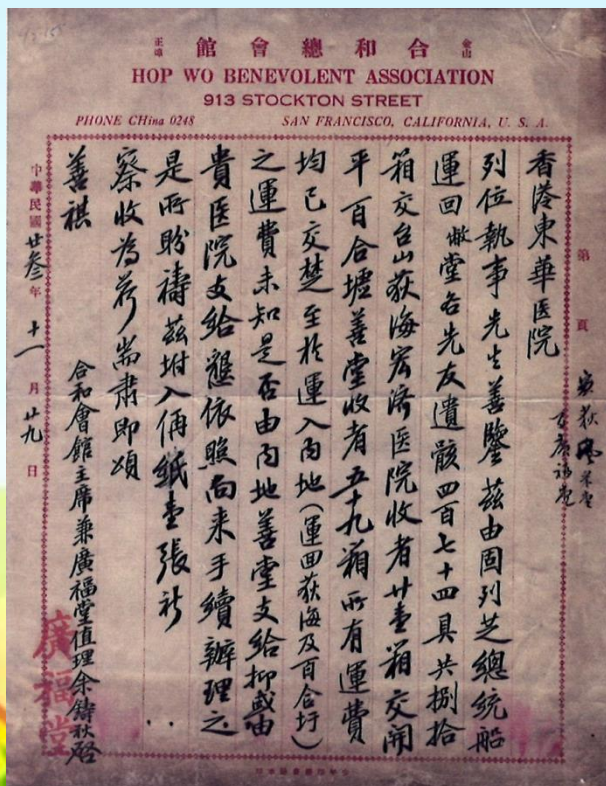 金山
合和總會館
正埠
HOP WO BENEVOLENT ASSOCIATION
913 STOCKTON STREET
PHONE CHina 0248
SAN FRANCISCO, CALIFORNIA, U. S. A.
第 頁
香港東華医院
列位執事先生善鑒茲由固列芝總統船
運回敝堂各先友遺骸四百七十四具共捌拾
箱交台山荻海宏济医院收者廿壹箱交開
平百合墟善堂收者五十九箱所有運費
均已交楚至於運入內地(運回荻海及百合圩)
之運費未知是否由內地善堂支給抑或由
貴医院支給懇依照向来手續辦理之
是所盼禱茲坿入俩紙壹張祈
察收為荷耑肅即頌
善祺
合和會館主席兼廣福堂值理余鑄秋啓
廣福堂
中華民國廿叁年十一月廿九日